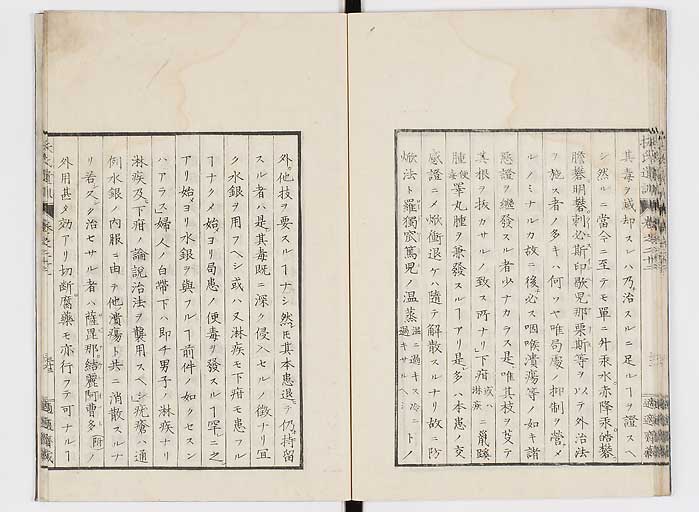 其毒ヲ減却スレハ乃治スルニ足ルヿヲ證スヘ
シ然ルニ當今ニ至テモ單ニ外汞水赤降汞皓礬
膽礬明礬刺必斯印歇兒那栗斯等ヲ以テ外治法
ヲ施ス者ノ多キハ何ソヤ唯局處ノ抑制ヲ營メ
ルノミナルカ故ニ後必ス咽喉潰瘍等ノ如キ諸
惡證ヲ繼發スル者少ナカラス是唯其枝ヲ芟テ
其根ヲ抜カサルノ致ス所ナリ下疳或淋疾ニ鼠蹊
便毒腫睪丸腫ヲ兼發スルヿアリ是多ハ本患ノ交
感證ニメ焮衝退ケハ隨テ解散スルナリ故ニ防
焮法ト羅獨宻篤兒ノ温蒸温ニ過キス冷ニ過キサルヘシトノ
外他技ヲ要スルヿナシ然モ其本患退テ仍持留
スル者ハ是其毒既ニ深ク侵入セルノ徴ナリ宜
ク水銀ヲ用フヘシ或ハ又淋疾モ下疳モ患フル
ヿナクメ始ヨリ局患ノ便毒ヲ發スルヿ罕ニ之
アリ始ヨリ水銀ヲ與フルヿ前件ノ如クセスン
ハアラス婦人ノ白帶下ハ即チ男子ノ淋疾ナリ
淋疾及下疳ノ論説治法ヲ襲用スヘシ疣瘡ハ通
例水銀ノ内服ニ由テ他潰瘍ト共ニ消散スルナ
リ若スク治セサル者ハ薩毘那結麗阿曹多附ノ
外用甚タ効アリ切斷腐藥モ亦行フテ可ナルヿ